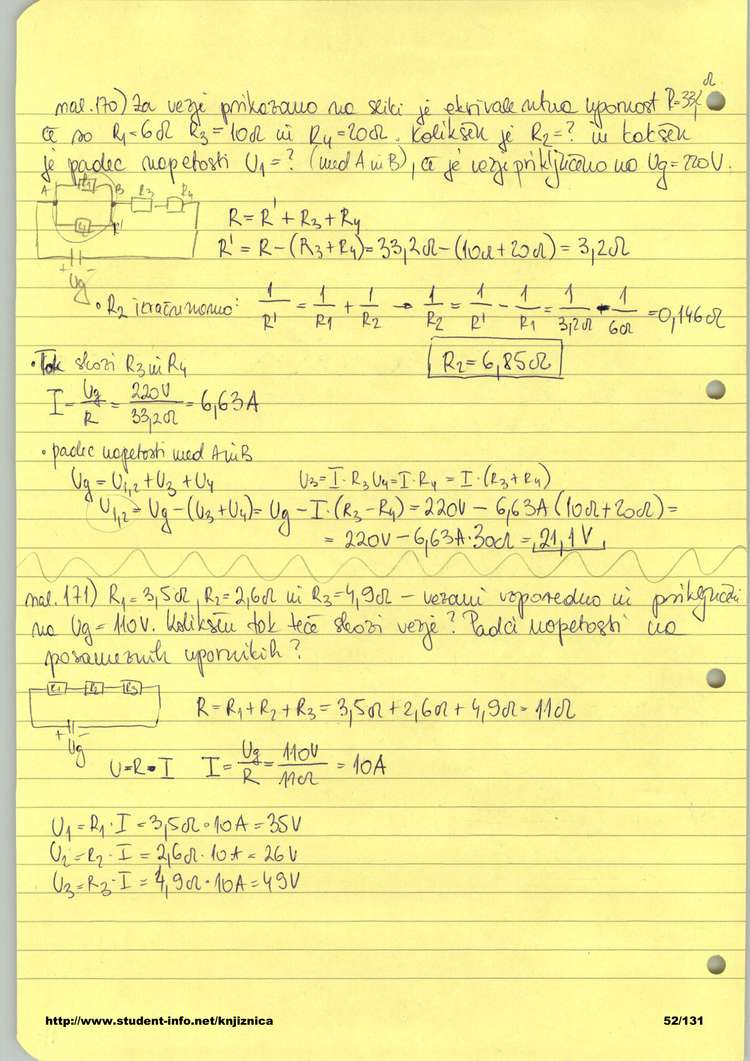 nal. 170) Za vezje prikazano na sliki je ekvivalentna upornost R=33,2 Ω
če so R1=6Ω R3=10Ω in R4=20Ω. Kolikšen je R2=? in kakšen
je padec napetosti U1=? (med A in B), če je vezje priključeno na Ug=220V.
A R1 B R3 R4
R2 R'
+ -
Ug
R = R' + R3 + R4
R' = R-(R3+R4) = 33,2Ω-(10Ω+20Ω) = 3,2Ω
• R2 izračunamo: 1/R' = 1/R1 + 1/R2 → 1/R2 = 1/R' - 1/R1 = 1/3,2Ω - 1/6Ω = 0,146Ω
R2 = 6,85Ω
• Tok skozi R3 in R4
I = Ug/R = 220V/33,2Ω = 6,63A
• padec napetosti med A in B
Ug = U1,2 + U3 + U4 U3=I·R3 U4=I·R4 = I·(R3+R4)
U1,2 = Ug-(U3+U4) = Ug-I·(R3-R4) = 220V - 6,63A (10Ω+20Ω) =
= 220V - 6,63A·30Ω = 21,1V
nal. 171) R1=3,5Ω, R2=2,6Ω in R3=4,9Ω - vezani vzporedno in priključeni
na Ug=110V. Kolikšen tok teče skozi vezje? Padci napetosti na
posameznih upornikih?
R1 R2 R3
+ -
Ug
R = R1+R2+R3 = 3,5Ω+2,6Ω+4,9Ω = 11Ω
U=R·I I = Ug/R = 110V/11Ω = 10A
U1 = R1·I = 3,5Ω·10A = 35V
U2 = R2·I = 2,6Ω·10A = 26V
U3 = R3·I = 4,9Ω·10A = 49V
http://www.student-info.net/knjiznica 52/131